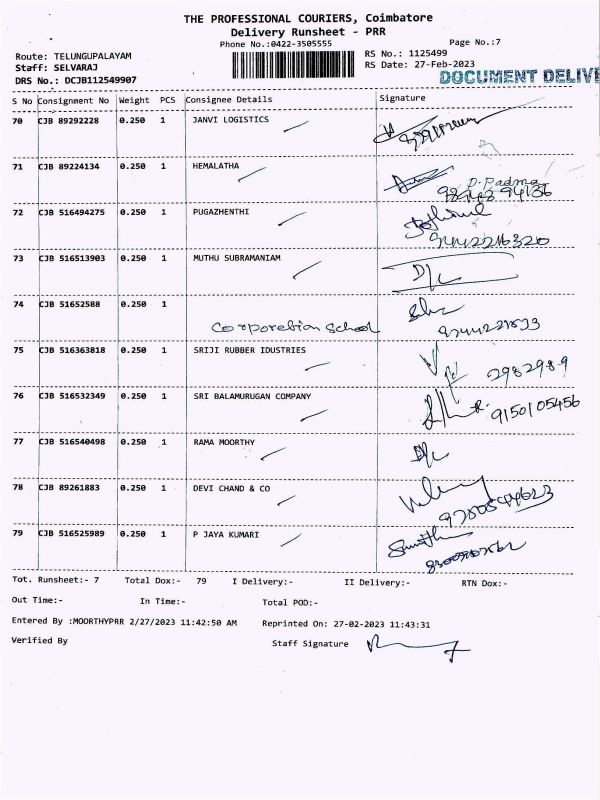 THE PROFESSIONAL COURIERS, Coimbatore
Delivery Runsheet - PRR
Phone No.:0422-3505555
Page No.:7
Route: TELUNGUPALAYAM
RS No.: 1125499
Staff: SELVARAJ
RS Date: 27-Feb-2023
DRS No.: DCJB112549907
DOCUMENT DELIVE
S No Consignment No Weight PCS Consignee Details Signature
70 CJB 89292228 0.250 1 JANVI LOGISTICS
71 CJB 89224134 0.250 1 HEMALATHA
D. Padma
72 CJB 516494275 0.250 1 PUGAZHENTHI
9442216320
73 CJB 516513903 0.250 1 MUTHU SUBRAMANIAM
D/c
74 CJB 51652588 0.250 1
Corporation School
75 CJB 516363818 0.250 1 SRIJI RUBBER IDUSTRIES
2982989
76 CJB 516532349 0.250 1 SRI BALAMURUGAN COMPANY
9150105456
77 CJB 516540498 0.250 1 RAMA MOORTHY
D/c
78 CJB 89261883 0.250 1 DEVI CHAND & CO
79 CJB 516525989 0.250 1 P JAYA KUMARI
Tot. Runsheet:- 7 Total Dox:- 79 I Delivery:- II Delivery:- RTN Dox:-
Out Time:- In Time:- Total POD:-
Entered By :MOORTHYPRR 2/27/2023 11:42:50 AM Reprinted On: 27-02-2023 11:43:31
Verified By Staff Signature